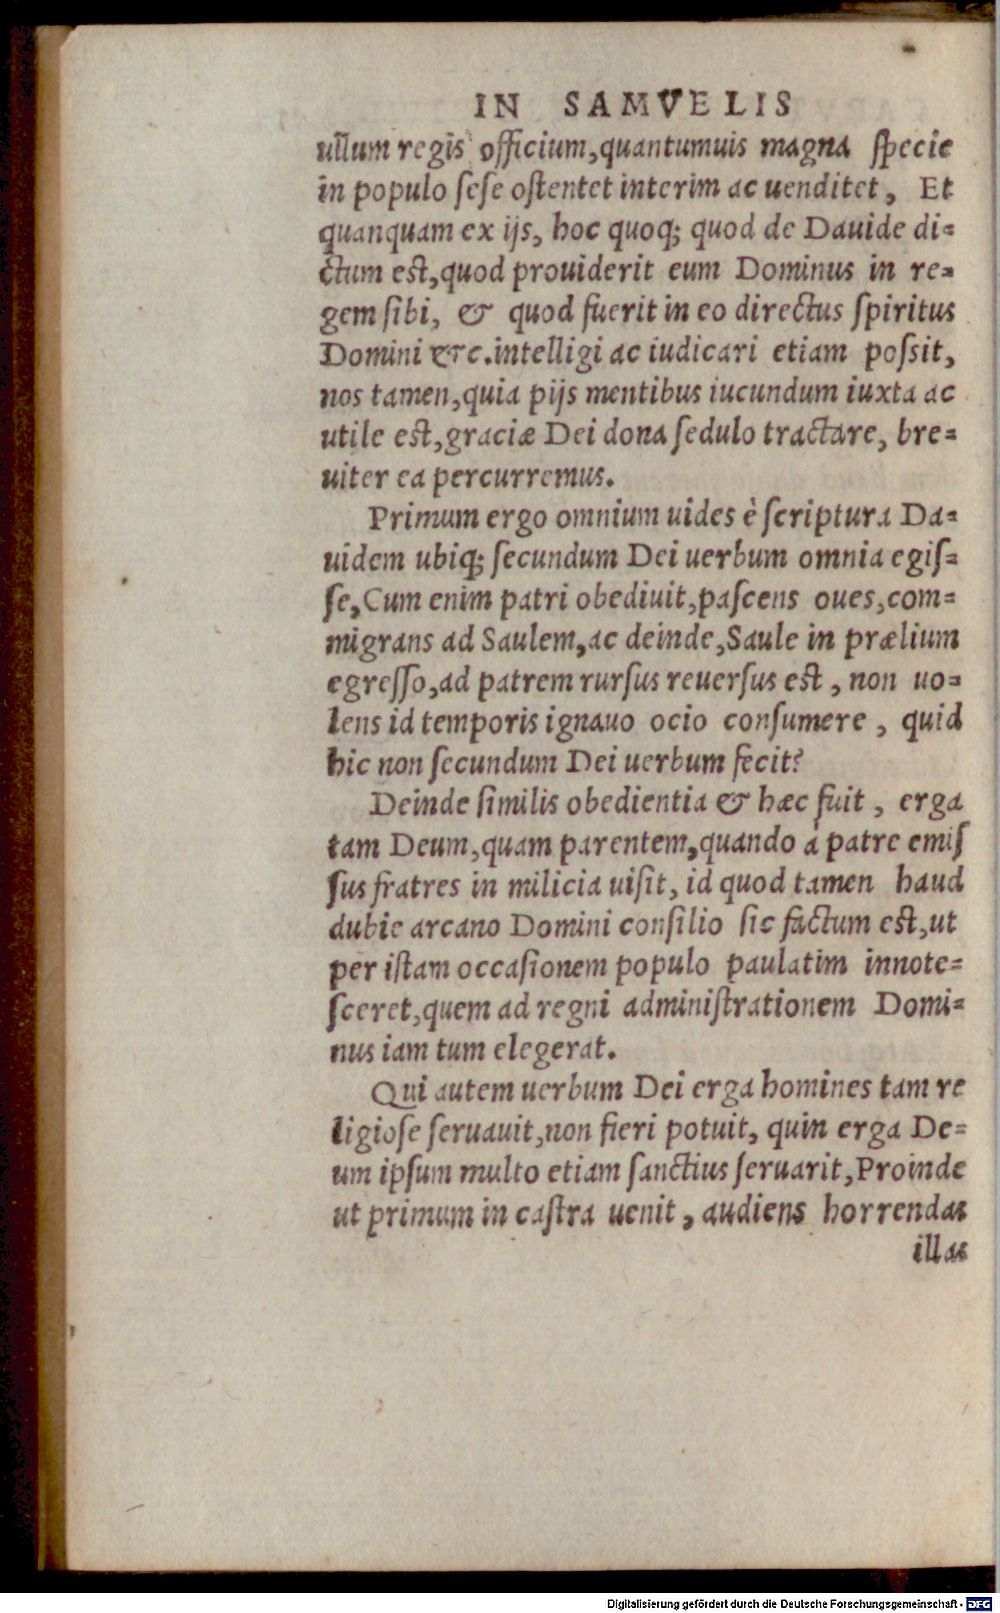 IN SAMVELIS
ullum regis officium, quantumuis magna specie
in populo sese ostentet interim ac uenditet, Et
quanquam ex ijs, hoc quoq; quod de Dauide di=
ctum est, quod prouiderit eum Dominus in re=
gem sibi, & quod fuerit in eo directus spiritus
Domini &c. intelligi ac iudicari etiam possit,
nos tamen, quia pijs mentibus iucundum iuxta ac
utile est, graciæ Dei dona sedulo tractare, bre=
uiter ea percurremus.
Primum ergo omnium uides è scriptura Da=
uidem ubiq; secundum Dei uerbum omnia egis=
se, Cum enim patri obediuit, pascens oues, com=
migrans ad Saulem, ac deinde, Saule in prælium
egresso, ad patrem rursus reuersus est, non uo=
lens id temporis ignauo ocio consumere, quid
hic non secundum Dei uerbum fecit?
Deinde similis obedientia & hæc fuit, erga
tam Deum, quam parentem, quando à patre emis
sus fratres in milicia uisit, id quod tamen haud
dubie arcano Domini consilio sic factum est, ut
per istam occasionem populo paulatim innote=
sceret, quem ad regni administrationem Domi=
nus iam tum elegerat.
Qui autem uerbum Dei erga homines tam re
ligiose seruauit, non fieri potuit, quin erga De=
um ipsum multo etiam sanctius seruarit, Proinde
ut primum in castra uenit, audiens horrendas
illas
Digitalisierung gefördert durch die Deutsche Forschungsgemeinschaft - DFG